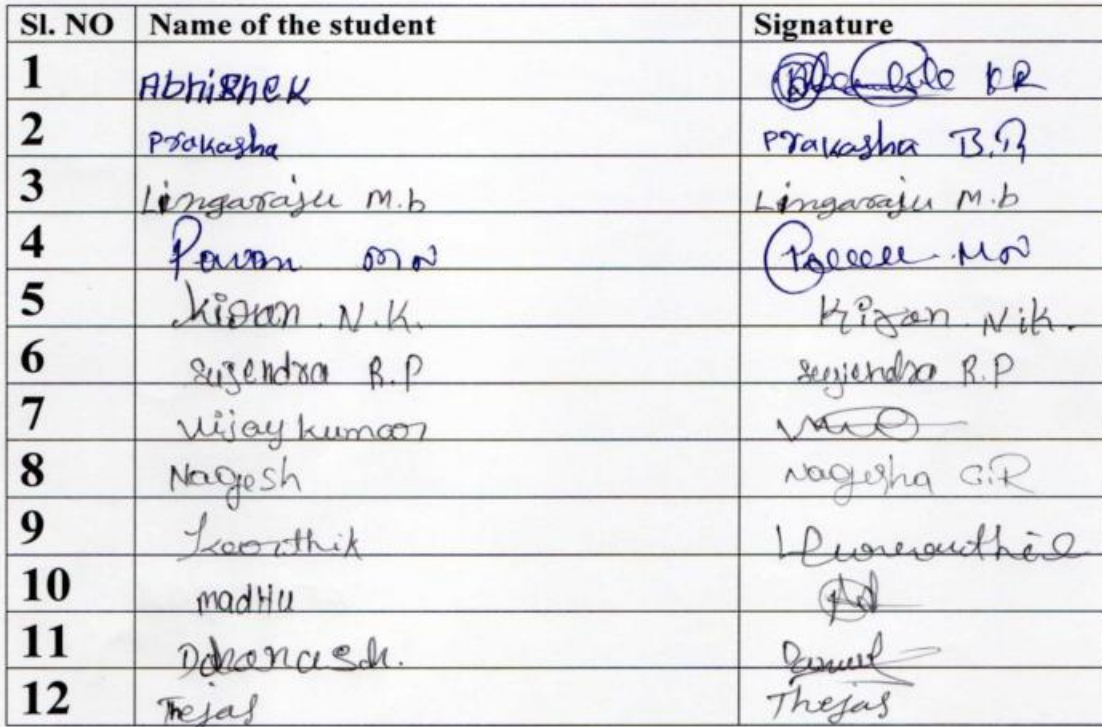 Sl. NO Name of the student Signature
1 Abhishek KR
2 Prakasha Prakasha B.R
3 Lingaraju M.b Lingaraju M.b
4 Pavan M N M N
5 Kiran N.K. Kiran N.K.
6 Sujendra R.P Sujendra R.P
7 Vijay kumar
8 Nagesh Nagesha G.R
9 Karthik
10 madHu
11
12 Thejas Thejas